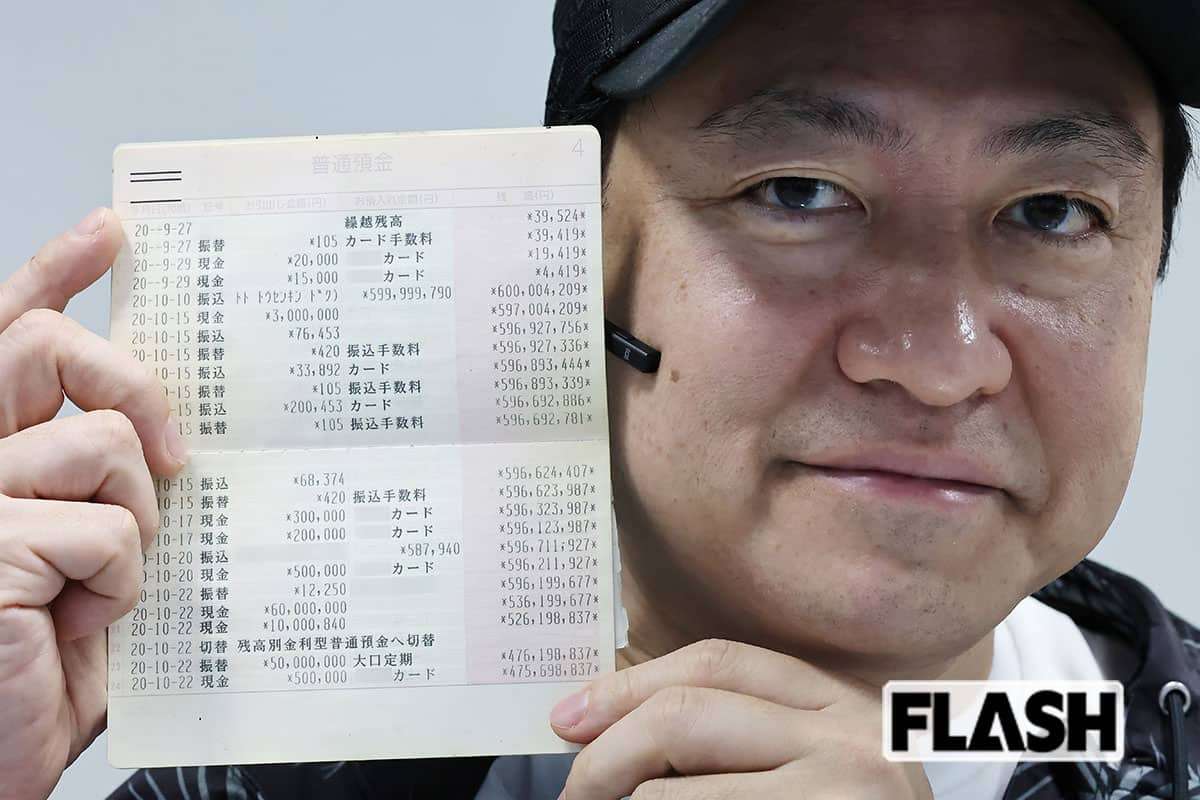 普通預金
4
20--9-27 繰越残高 *39,524*
20--9-27 振替 *105 カード手数料 *39,419*
20--9-29 現金 *20,000 カード *19,419*
20--9-29 現金 *15,000 カード *4,419*
20-10-10 振込 トト トウセンキン *599,999,790 *600,004,209*
20-10-15 現金 *3,000,000 *597,004,209*
20-10-15 振込 *76,453 *596,927,756*
20-10-15 振替 *420 振込手数料 *596,927,336*
20-10-15 振込 *33,892 カード *596,893,444*
20-10-15 振替 *105 振込手数料 *596,893,339*
-15 振込 *200,453 カード *596,692,886*
-15 振替 *105 振込手数料 *596,692,781*
-10-15 振込 *68,374 *596,624,407*
-10-15 振替 *420 振込手数料 *596,623,987*
-10-17 現金 *300,000 カード *596,323,987*
-10-17 現金 *200,000 カード *596,123,987*
0-10-20 振込 *587,940 *596,711,927*
20-10-20 現金 *500,000 カード *596,211,927*
20-10-22 振替 *12,250 *596,199,677*
20-10-22 現金 *60,000,000 *536,199,677*
20-10-22 現金 *10,000,840 *526,198,837*
20-10-22 切替 残高別金利型普通預金へ切替
20-10-22 振替 *50,000,000 大口定期 *476,198,837*
20-10-22 現金 *500,000 カード *475,698,837*
FLASH